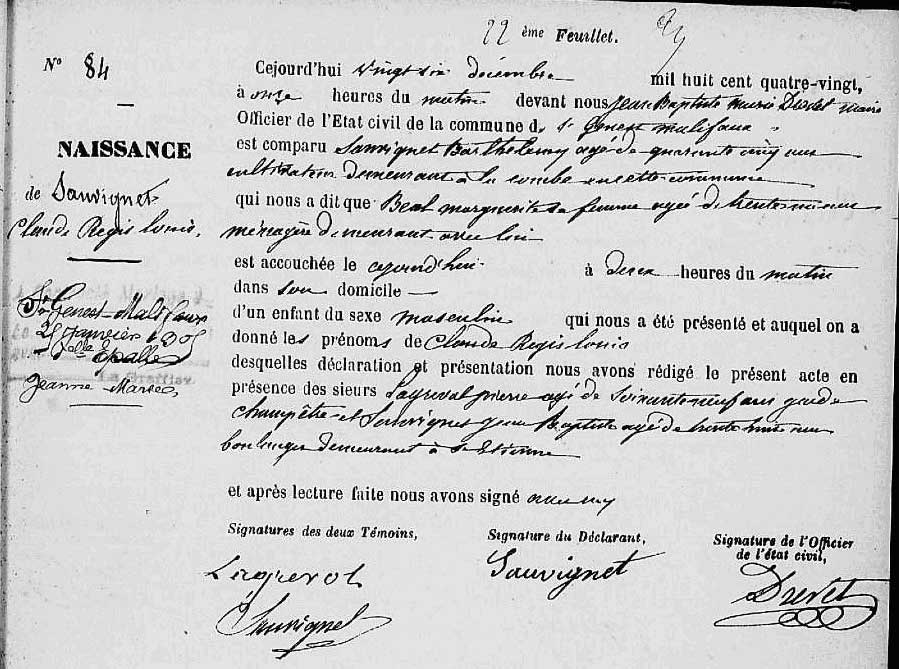 22 ème Feuillet.
N° 84
NAISSANCE
de Sauvignet
Claude Regis Louis,
St Genest-Malifaux
25 Janvier 1905
Jeanne Marie
Cejourd'hui vingt six décembre mil huit cent quatre-vingt,
à onze heures du matin devant nous Jean Baptiste Marie Drevet maire
Officier de l'Etat civil de la commune de St Genest malifaux
est comparu Sauvignet Barthelemy agé de quarante cinq ans
cultivateur demeurant à la combe en cette commune
qui nous a dit que Béal marguerite sa femme agée de trente ans
ménagère demeurant avec lui
est accouchée le cejourd'hui à deux heures du matin
dans son domicile
d'un enfant du sexe masculin qui nous a été présenté et auquel on a
donné les prénoms de Claude Regis Louis
desquelles déclaration et présentation nous avons rédigé le présent acte en
présence des sieurs pierre agé de soixante neuf ans garde
champêtre et Sauvignet Jean Baptiste agé de trente huit ans
boulanger demeurant à St Etienne
et après lecture faite nous avons signé
Signatures des deux Témoins,
Signature du Déclarant,
Signature de l'Officier
de l'état civil,
Sauvignet
Drevet
Sauvignet